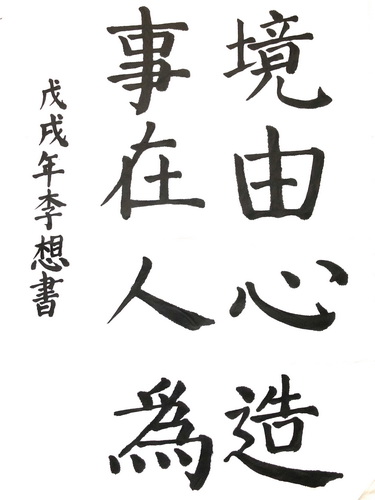 境由心造
事在人為
戊戌年李想書